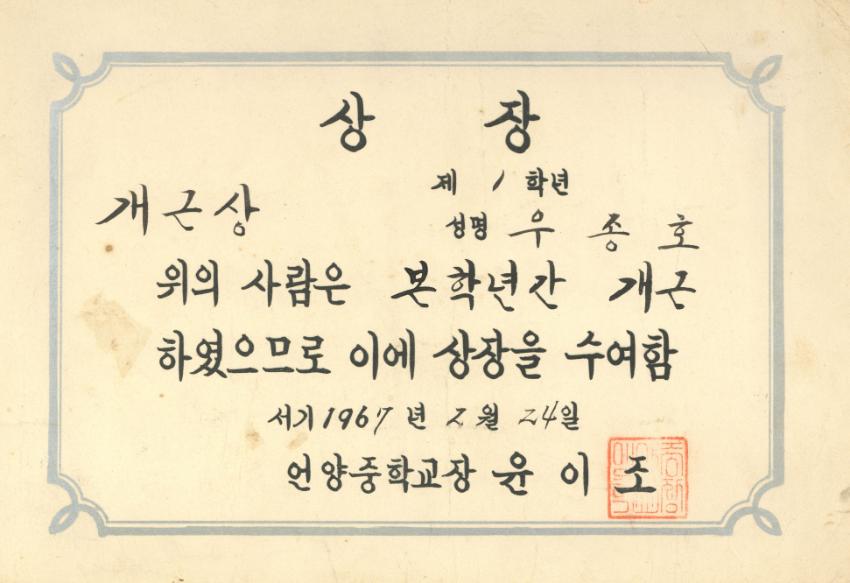 상 장
제 1 학년
개근상
성명 우 종 호
위의 사람은 본학년간 개근
하였으므로 이에 상장을 수여함
서기 1967 년 2 월 24일
언양중학교장 윤 이 조